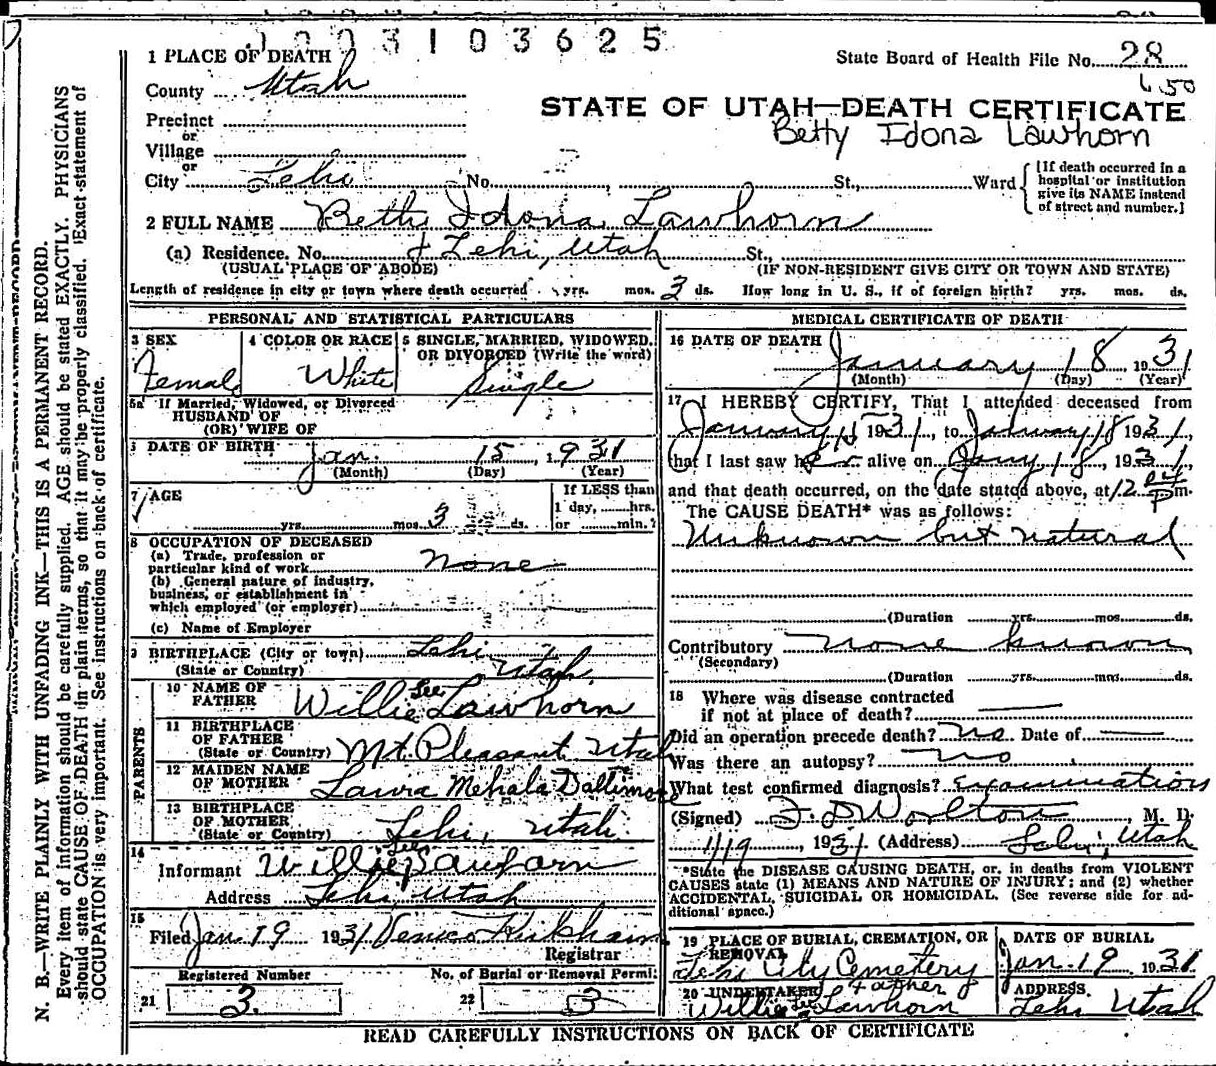 003103625
State Board of Health File No. 28
650
1 PLACE OF DEATH
County Utah
STATE OF UTAH—DEATH CERTIFICATE
Betty Idona Lawhorn
Precinct
or
Village
or
City Lehi No. , St., Ward
[If death occurred in a hospital or institution give its NAME instead of street and number.]
2 FULL NAME Betty Idona Lawhorn
(a) Residence. No. Lehi, Utah St.,
(USUAL PLACE OF ABODE) (IF NON-RESIDENT GIVE CITY OR TOWN AND STATE)
Length of residence in city or town where death occurred yrs. mos. 3 ds. How long in U. S., if of foreign birth? yrs. mos. ds.
PERSONAL AND STATISTICAL PARTICULARS
3 SEX
Female
4 COLOR OR RACE
White
5 SINGLE, MARRIED, WIDOWED, OR DIVORCED (Write the word)
Single
5a If Married, Widowed, or Divorced
HUSBAND OF
(OR) WIFE OF
6 DATE OF BIRTH
Jan. 15, 1931
(Month) (Day) (Year)
7 AGE
yrs. mos. 3 ds.
If LESS than
1 day, hrs.
or min.?
8 OCCUPATION OF DECEASED
(a) Trade, profession or
particular kind of work None
(b) General nature of industry,
business, or establishment in
which employed (or employer)
(c) Name of Employer
9 BIRTHPLACE (City or town) Lehi,
(State or Country) Utah.
PARENTS
10 NAME OF
FATHER Willie Lee Lawhorn
11 BIRTHPLACE
OF FATHER
(State or Country) Mt. Pleasant, Utah
12 MAIDEN NAME
OF MOTHER Laura Mehala Dallimore
13 BIRTHPLACE
OF MOTHER
(State or Country) Lehi, Utah.
14
Informant Willie Lee Lawhorn
Address Lehi, Utah
15
Filed Jan. 19 1931 Kirkham
Registrar
Registered Number No. of Burial or Removal Permit
21 3. 22 3
MEDICAL CERTIFICATE OF DEATH
16 DATE OF DEATH
January 18, 1931
(Month) (Day) (Year)
17 I HEREBY CERTIFY, That I attended deceased from
January 15 1931, to January 18 1931,
that I last saw her alive on Jany 18, 1931,
and that death occurred, on the date stated above, at 12 Pm.
The CAUSE DEATH* was as follows:
Unknown but natural
(Duration yrs. mos. ds.
Contributory none known
(Secondary)
(Duration yrs. mos. ds.
18 Where was disease contracted
if not at place of death?
Did an operation precede death? No Date of
Was there an autopsy? No
What test confirmed diagnosis? Examinations
(Signed) , M. D.
1/19, 1931 (Address) Lehi, Utah
*State the DISEASE CAUSING DEATH, or, in deaths from VIOLENT
CAUSES state (1) MEANS AND NATURE OF INJURY; and (2) whether
ACCIDENTAL, SUICIDAL OR HOMICIDAL. (See reverse side for additional space.)
19 PLACE OF BURIAL, CREMATION, OR REMOVAL
Lehi City Cemetery
DATE OF BURIAL
Jan. 19 1931
20 UNDERTAKER Father
Willie Lee Lawhorn
ADDRESS
Lehi Utah
READ CAREFULLY INSTRUCTIONS ON BACK OF CERTIFICATE
N. B.—WRITE PLAINLY WITH UNFADING INK—THIS IS A PERMANENT RECORD.
Every item of information should be carefully supplied. AGE should be stated EXACTLY. PHYSICIANS
should state CAUSE OF DEATH in plain terms, so that it may be properly classified. Exact statement of
OCCUPATION is very important. See instructions on back of certificate.